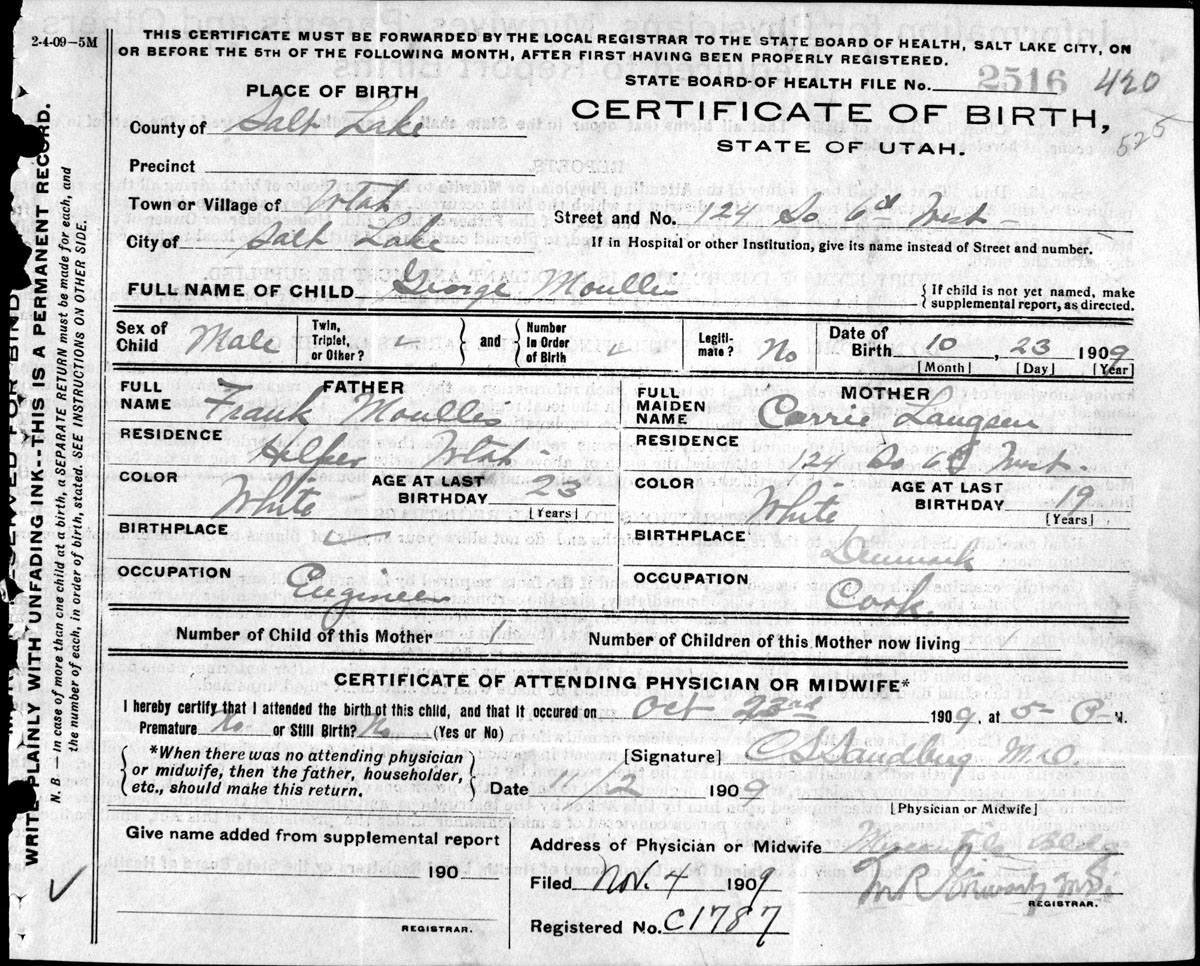 2-4-09—5M
THIS CERTIFICATE MUST BE FORWARDED BY THE LOCAL REGISTRAR TO THE STATE BOARD OF HEALTH, SALT LAKE CITY, ON
OR BEFORE THE 5TH OF THE FOLLOWING MONTH, AFTER FIRST HAVING BEEN PROPERLY REGISTERED.
STATE BOARD OF HEALTH FILE No. 2516 420
PLACE OF BIRTH
CERTIFICATE OF BIRTH,
525
STATE OF UTAH.
County of Salt Lake
Precinct
Town or Village of Utah
Street and No. 124 So 6th West
City of Salt Lake
If in Hospital or other Institution, give its name instead of Street and number.
FULL NAME OF CHILD George Moullis
{If child is not yet named, make
supplemental report, as directed.
Sex of Child Male
Twin, Triplet, or Other? } and { Number In Order of Birth
Legiti-mate? No
Date of Birth 10, 23 1909
[Month] [Day] [Year]
FATHER
FULL NAME Frank Moullis
RESIDENCE Helper Utah
COLOR White AGE AT LAST BIRTHDAY 23
[Years]
BIRTHPLACE —
OCCUPATION Engineer
MOTHER
FULL MAIDEN NAME Carrie Laugsen
RESIDENCE 124 So 6th West.
COLOR White AGE AT LAST BIRTHDAY 19
[Years]
BIRTHPLACE Denmark
OCCUPATION Cook.
Number of Child of this Mother 1 Number of Children of this Mother now living
CERTIFICATE OF ATTENDING PHYSICIAN OR MIDWIFE*
I hereby certify that I attended the birth of this child, and that it occured on Oct 23rd 1909, at 5 P M.
Premature No or Still Birth? No (Yes or No)
{*When there was no attending physician
or midwife, then the father, householder,
etc., should make this return.}
[Signature] C S Sandbug M.D.
Date 11/2 1909
[Physician or Midwife]
Give name added from supplemental report
190
REGISTRAR.
Address of Physician or Midwife Mercantile Bldg
Filed Nov. 4 1909
REGISTRAR.
Registered No. C1787
WRITE PLAINLY WITH UNFADING INK--THIS IS A PERMANENT RECORD.
N. B.—In case of more than one child at a birth, a SEPARATE RETURN must be made for each, and
the number of each, in order of birth, stated. SEE INSTRUCTIONS ON OTHER SIDE.